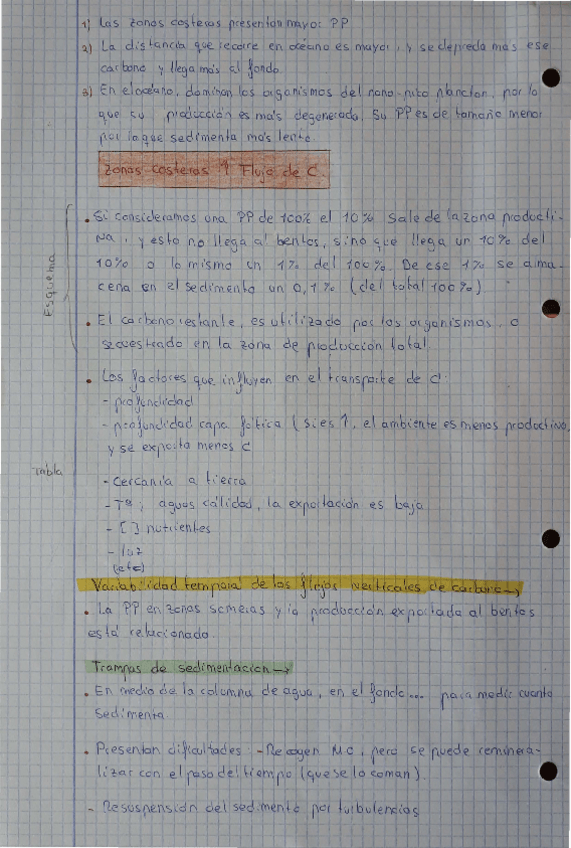 1) Las zonas costeras presentan mayor PP
2) La distancia que recorre en océano es mayor, y se depreda más ese
carbono y llega más al fondo
3) En el océano, dominan los organismos del nano-pico plancton, por lo
que su producción es más degenerada. Su PP es de tamaño menor
por lo que sedimenta más lento.
Zonas costeras ↑ Flujo de C.
Esquema
• Si consideramos una PP de 100% el 10% sale de la zona producti-
va, y esto no llega al bentos, sino que llega un 10% del
10% o lo mismo un 1% del 100%. De ese 1% se alma-
cena en el sedimento un 0,1% (del total 100%)
• El carbono restante, es utilizado por los organismos, o
secuestrado en la zona de producción total
• Los factores que influyen en el transporte de C:
- profundidad
- profundidad capa fótica (si es ↑, el ambiente es menos productivo,
y se exporta menos C
Tabla
- Cercanía a tierra
- Tª; aguas cálidas, la exportación es baja
- [ ] nutrientes
- luz
(etc)
Variabilidad temporal de los flujos verticales de carbono →
• La PP en zonas someras y la producción exportada al bentos
está relacionado.
Trampas de sedimentación →
• En medio de la columna de agua, en el fondo... para medir cuanto
sedimenta
• Presentan dificultades: - Recogen MO, pero se puede reminera-
lizar con el paso del tiempo (que se lo coman).
- Resuspensión del sedimento por turbulencias